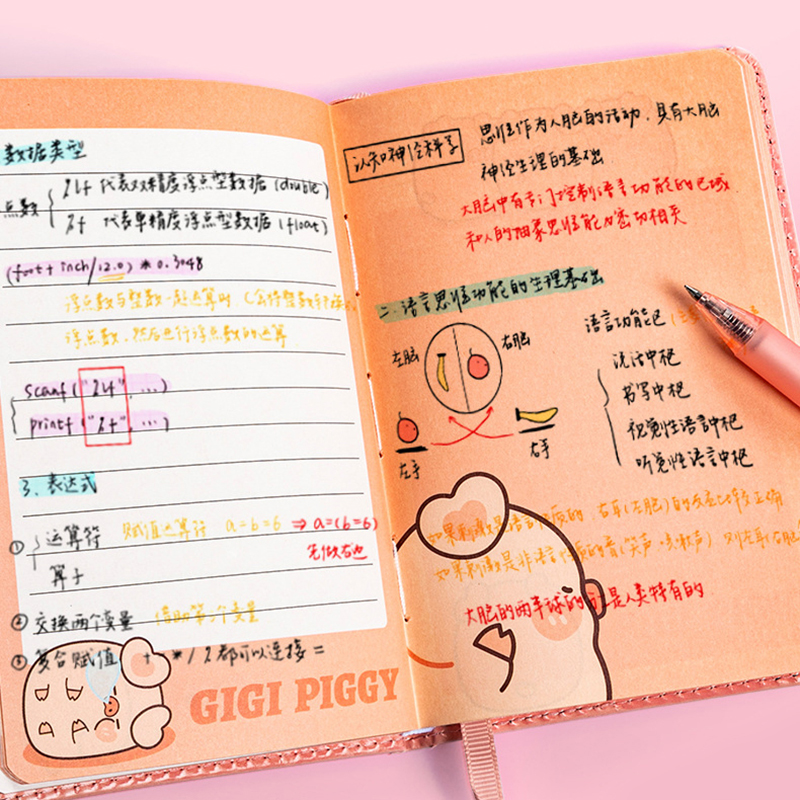 数据类型
点数
%lf 代表双精度浮点型数据 (double)
%f 代表单精度浮点型数据 (float)
(foot + inch/12.0) * 0.3048
浮点数与整数一起运算时 (会将整数
浮点数，然后进行浮点数的运算
scanf("%lf", ...)
printf("%f", ...)
3、表达式
① 运算符 赋值运算符 a=b=6 ⇒ a=(b=6)
先做右边
算子
② 交换两个变量 借助第三个变量
③ 复合赋值 + - * / % 都可以连接 =
GIGI PIGGY
认知神经科学
思维作为人脑的活动，具有大脑
神经生理的基础
大脑中有专门控制语言功能的区域
和人的抽象思维能力密切相关
二、语言思维功能的生理基础
左脑 右脑
左手 右手
语言功能区
说话中枢
书写中枢
视觉性语言中枢
听觉性语言中枢
如果刺激是语言性质的，右耳(左脑)的反应比较正确
如果刺激是非语言性质的音(笑声、咳嗽声) 则左耳(右脑
大脑的两半球的分工是人类特有的